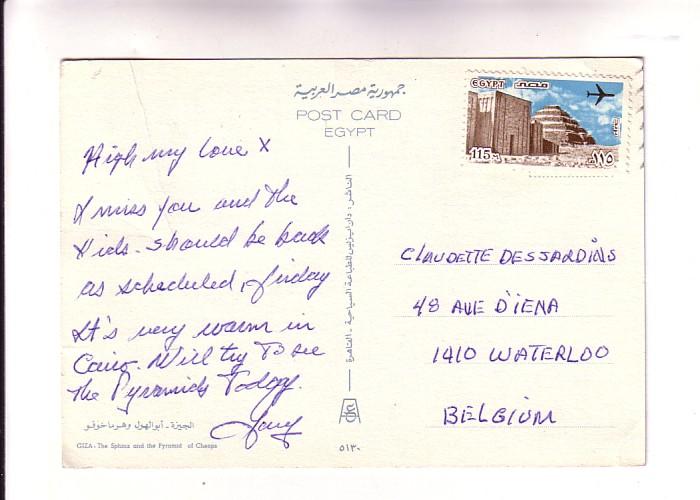 جمهورية مصر العربية
POST CARD
EGYPT
EGYPT مصر
115 M ١١٥
High my love X
I miss you and the
Kids. should be back
as scheduled, friday
It's very warm in
Cairo. Will try To see
the Pyramids Today.
CLAUDETTE DESJARDINS
48 AVE D'IENA
1410 WATERLOO
BELGIUM
الجيزة - أبو الهول وهرم خوفو
GIZA: The Sphinx and the Pyramid of Cheops
٥١٣٠